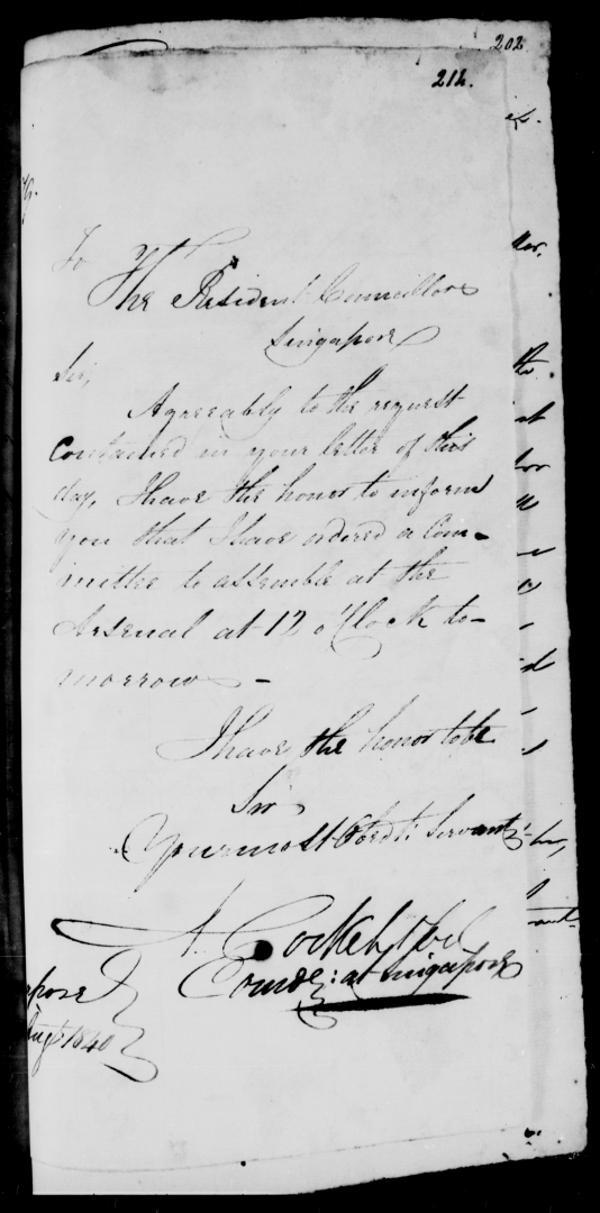 202
212.
To
The Resident Councillor
Singapore
Sir,
Agreeably to the request
contained in your letter of this
day, I have the honor to inform
you that I have ordered a Com-
mittee to assemble at the
Arsenal at 12 o'Clock to-
morrow -
I have the honor to be
Sir
Your most Obedt: Servant
A.
Comdg: at Singapore
pore
Augt 1840